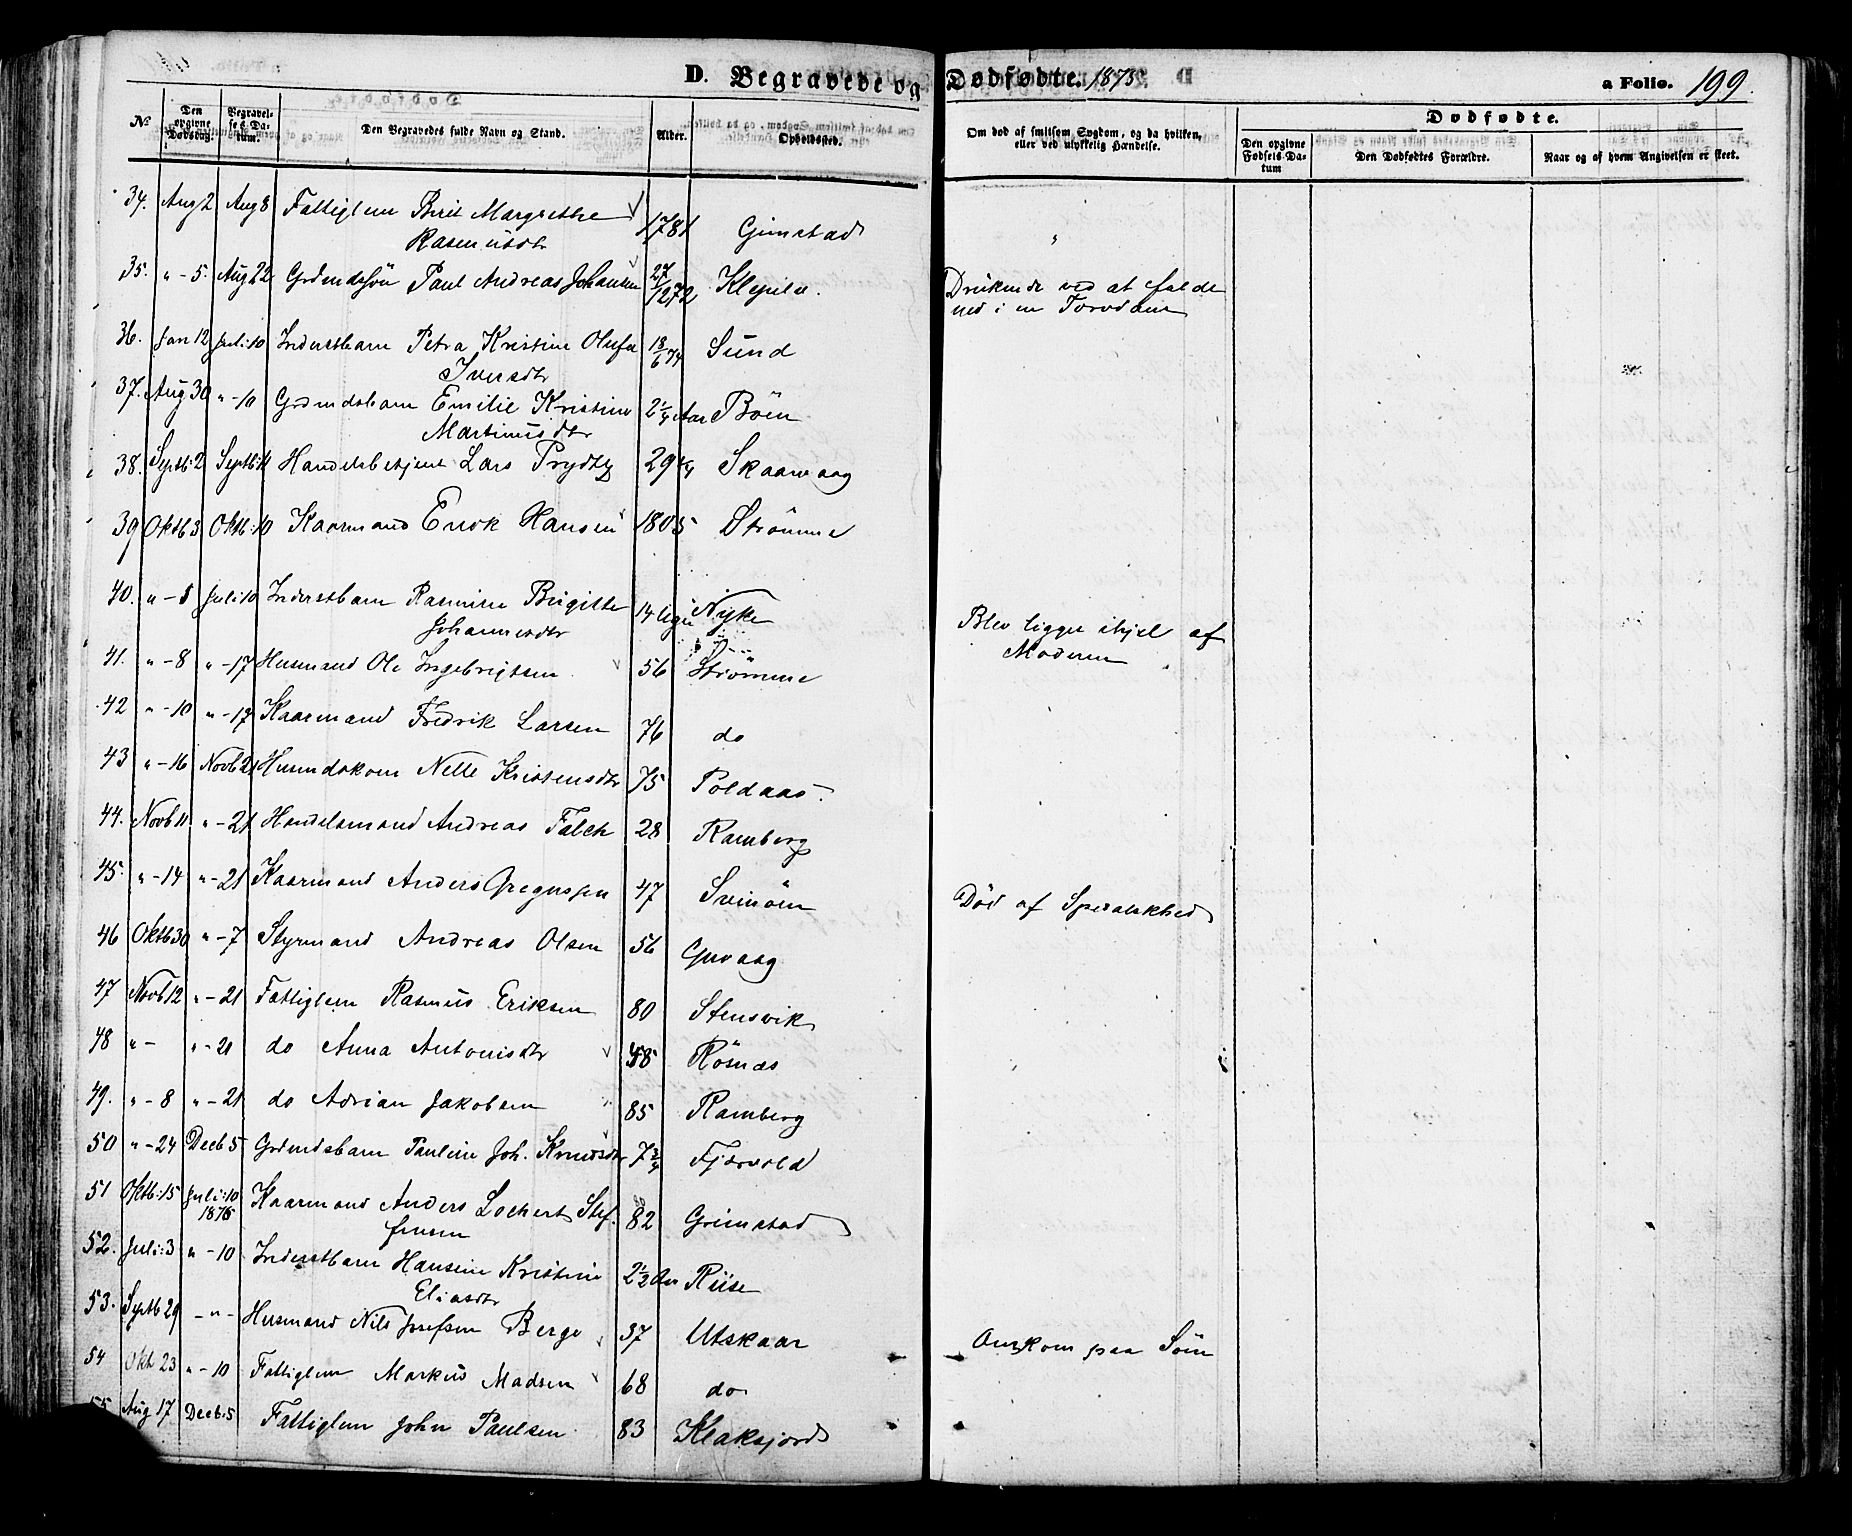 D. Begravede og Dødfødte. 1875. a Folio. 199.
No | Den opgivne Dødsdag. | Begravelses Datum. | Den Begravedes fulde Navn og Stand. | Alder. | Opholdssted. | Om død af smitsom Sygdom, og da hvilken, eller ved ulykkelig Hændelse. | Dødfødte.
Den opgivne Fødsels-Datum | Den Dødfødtes Forældre. | Naar og af hvem Angivelsen er skeet.
34. Aug 2 Aug 8 Fattiglem Berit Margrethe 1781 Grimstad "
Rasmusdtr
35. " - 5. Aug 22 Grdmdssøn Paul Andreas Johansen 27/12 72 Druknede ved at falde
ned i en Torvdam
36. Jan 12 Juli 10 Inderstbarn Petra Kristine Olufa 18/6 74 Sund
Iversdtr
37. Aug 30 " - 10 Grdmdsbarn Emilie Kristine 2 1/4 Aar Böen
Martinusdtr
38. Septb: 2 Septb: 11 Handelsbetjent Lars Prydtz 29 Skaarvaag
39 Oktb 3 Oktb: 10 Kaarmand Erik Hansen 1805 Strömme
40. " - 5 Juli: 10 Inderstbarn Rasmine Birgitte 14 Nyke Blev ligget ihjel af
Johannesdtr Moderen
41. " - 8 " - 17 Husmand Ole Ingebrigtsen 56 Strömme
42 " - 10 " - 17 Kaarmand Fredrik Larsen 76 do
43 " - 16 Novb 21 Husmdskone Nelle Kristensdtr 75 Poldaas.
44. Novb 11 " - 21 Handelsmand Andreas Falch 28 Ramberg
45. " - 14 " - 21 Kaarmand Anders Gregussen 47 Svinöen Död af Spedalskhed
46 Oktb 30 " - 7 Styrmand Andreas Olsen 56 Guvaag
47 Novb 12 " - 21 Fattiglem Rasmus Eriksen 80 Stensvik
48 " - " - 21 do Anna Antonisdtr Rösnæs
49. " - 8 " - 21 do Adrian Jakobsen 85 Ramberg
50 " - 24 Decb 5 Grdmdsbarn Pauline Joh. Knudsdtr 7 3/4 Fjærvold
51 Oktb: 15 Juli: 10 Kaarmand Anders Lochert Stef- 82 Grimstad
1876 fensen
52. Juli: 3 " - 10 Inderstbarn Hansine Kristine 2 1/2 Aar Riise
Eliasdtr
53. Septb 29 - " - Husmand Nils Josefsen Berge 37 Utskaar Omkom paa Söen
54 Okt 23 " - 10 Fattiglem Markus Madsen 68 do
55 Aug 17 Decb: 5 Fattiglem John Paulsen 83 Klaksjord